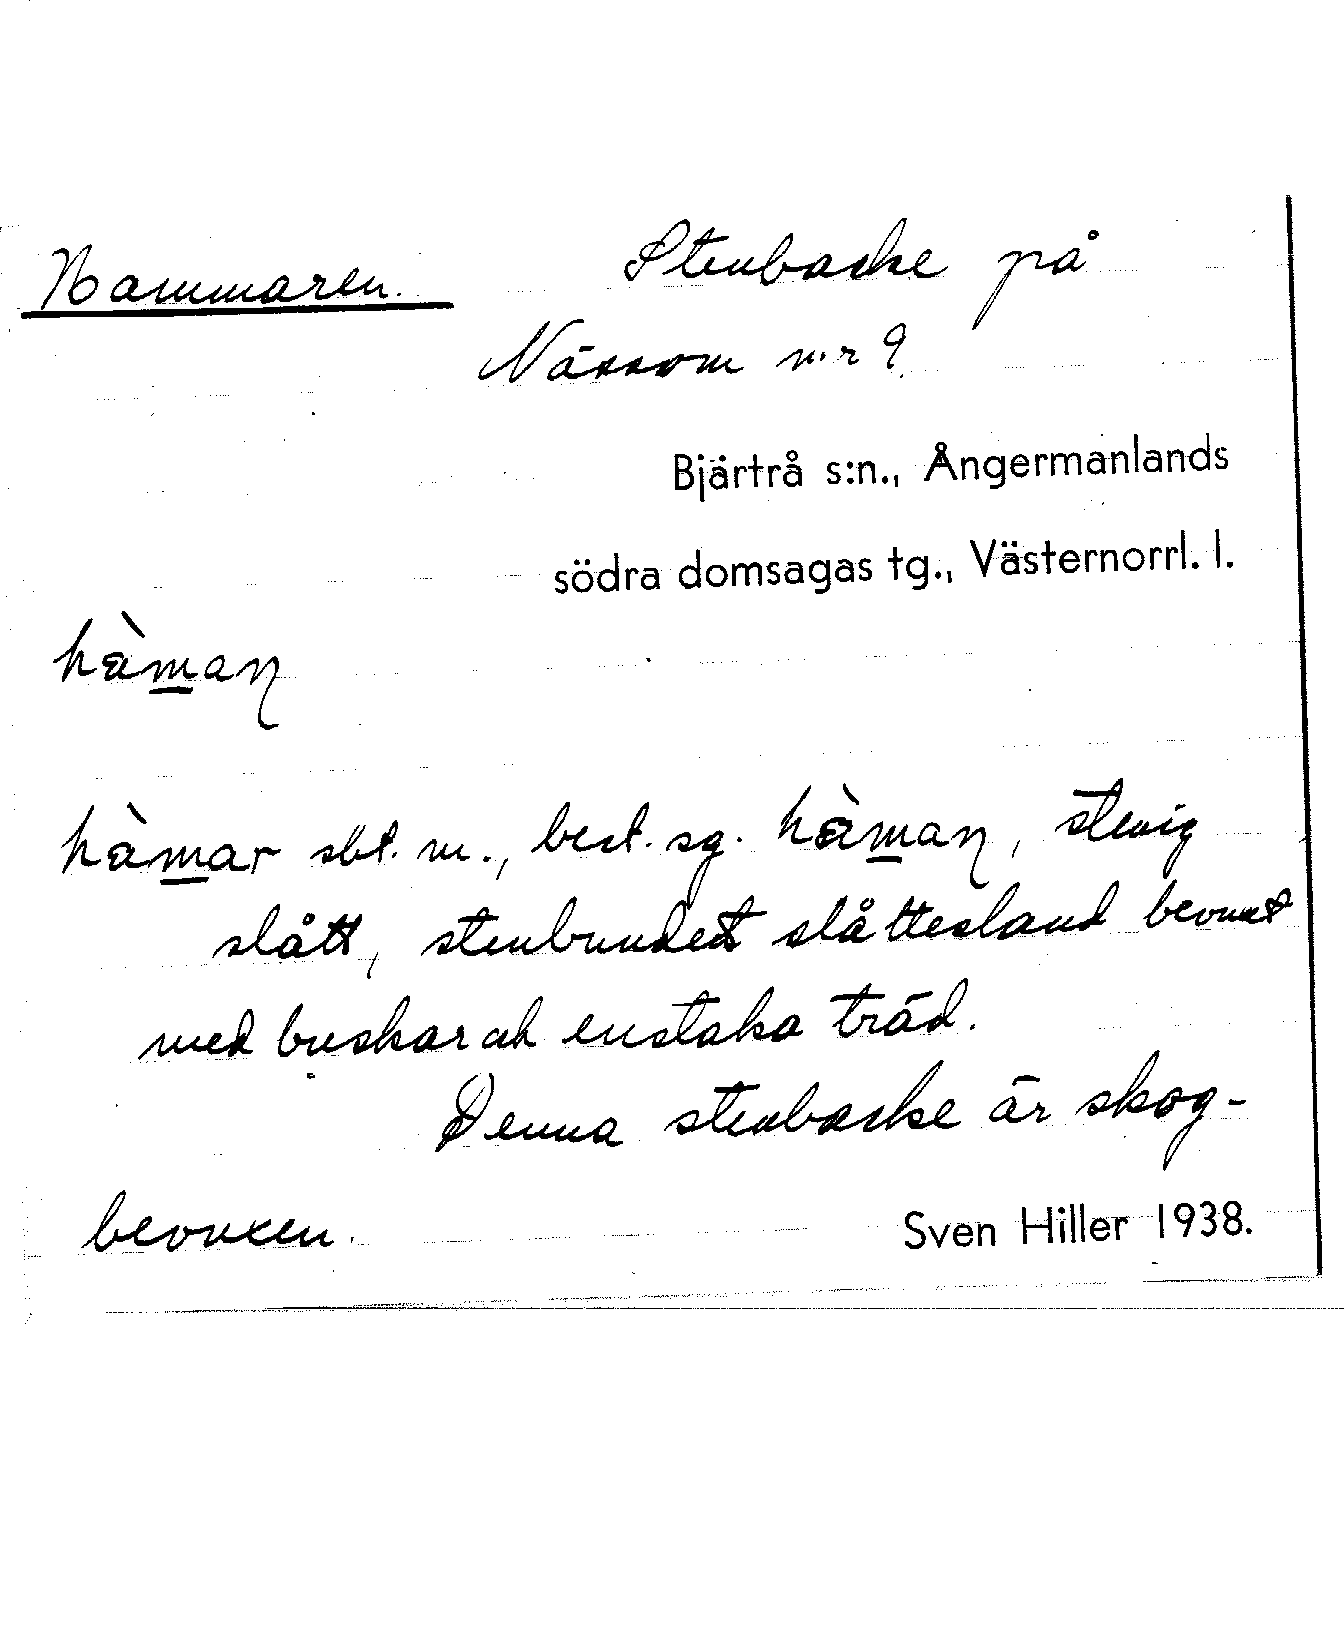 Hammaren. Stenbacke på
Nässom n:r 9
Bjärtrå s:n., Ångermanlands
södra domsagas tg., Västernorrl. l.
hàm̲aɳ
hàm̲ar sbt. m., best. sg. hàm̲aɳ, stenig
slått, stenbundet slåttesland bevuxet
med buskar och enstaka träd.
Denna stenbacke är skog-
bevuxen.
Sven Hiller 1938.